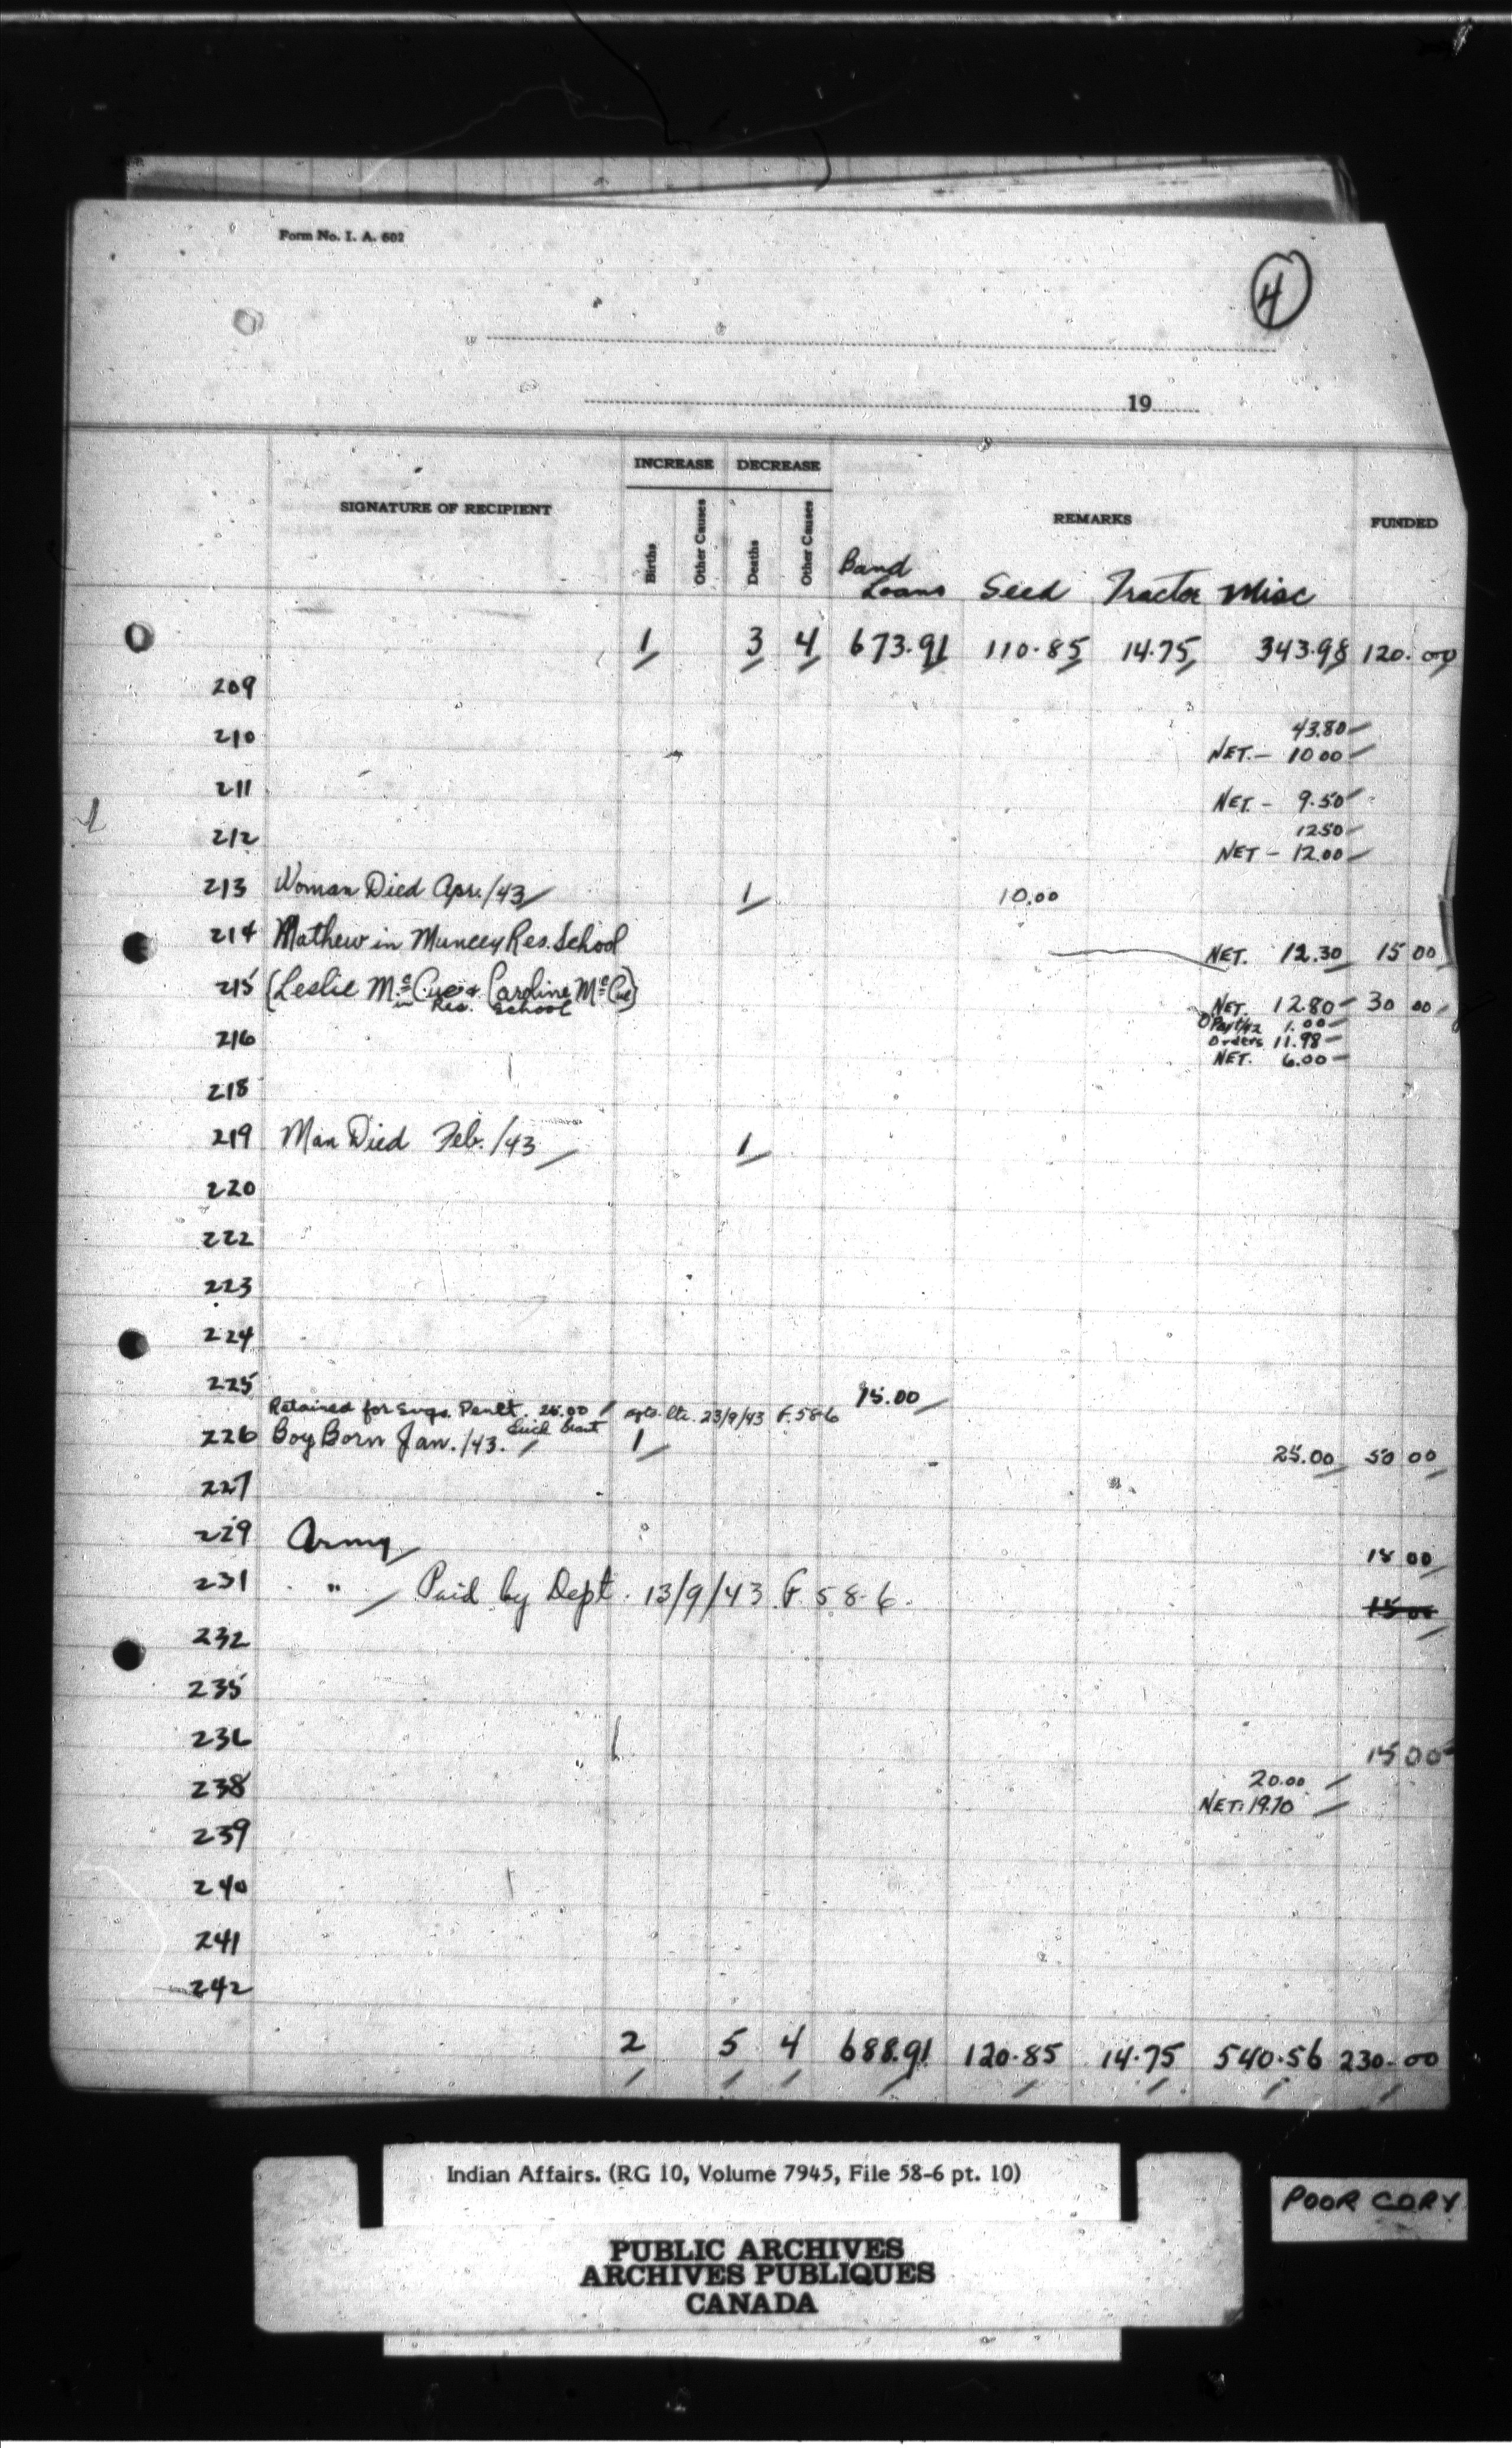 Form No. I. A. 602
4
19
INCREASE DECREASE
SIGNATURE OF RECIPIENT Births Other Causes Deaths Other Causes REMARKS FUNDED
Band Loans Seed Tractor Misc
1 3 4 673.91 110.85 14.75 343.98 120.00
209
43.80
210 NET.- 10 00
211 NET.- 9.50
12 50
212 NET - 12.00
213 Woman Died Apr./43 1 10.00
214 Mathew in Muncey Res. School NET. 12.30 15 00
215 (Leslie McCue & Caroline McCue) NET. 12.80 30 00
in Res. School
1.00
Orders 11.98
216 NET. 6.00
218
219 Man Died Feb./43 1
220
222
223
224
225 15.00
Retained for 25.00 agts. ltr. 23/9/43 F.58-6
226 Boy Born Jan./43. 1 25.00 50 00
227
229 Army 15 00
231 " Paid by Dept. 13/9/43 F. 58-6. 15 00
232
235
236 15 00
20.00
238 NET. 19.70
239
240
241
242
2 5 4 688.91 120.85 14.75 540.56 230.00
Indian Affairs. (RG 10, Volume 7945, File 58-6 pt. 10)
POOR COPY
PUBLIC ARCHIVES
ARCHIVES PUBLIQUES
CANADA